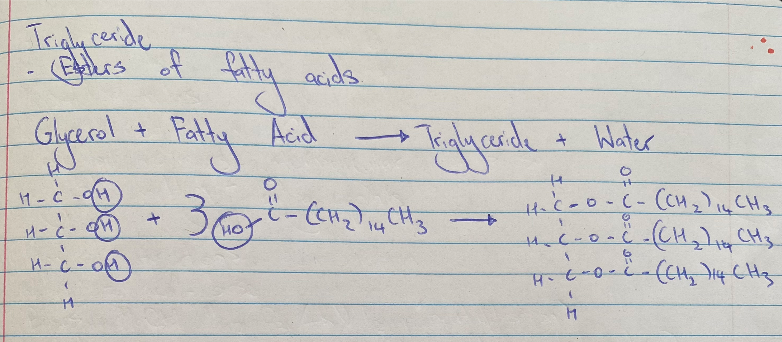 Triglyceride
- Esters of fatty acids
Glycerol + Fatty Acid → Triglyceride + Water
H H O
H - C - OH O H - C - O - C - (CH₂)₁₄CH₃
H - C - OH + 3 HO - C - (CH₂)₁₄CH₃ → O
H - C - O - C - (CH₂)₁₄CH₃
H - C - OH O
H - C - O - C - (CH₂)₁₄CH₃
H H